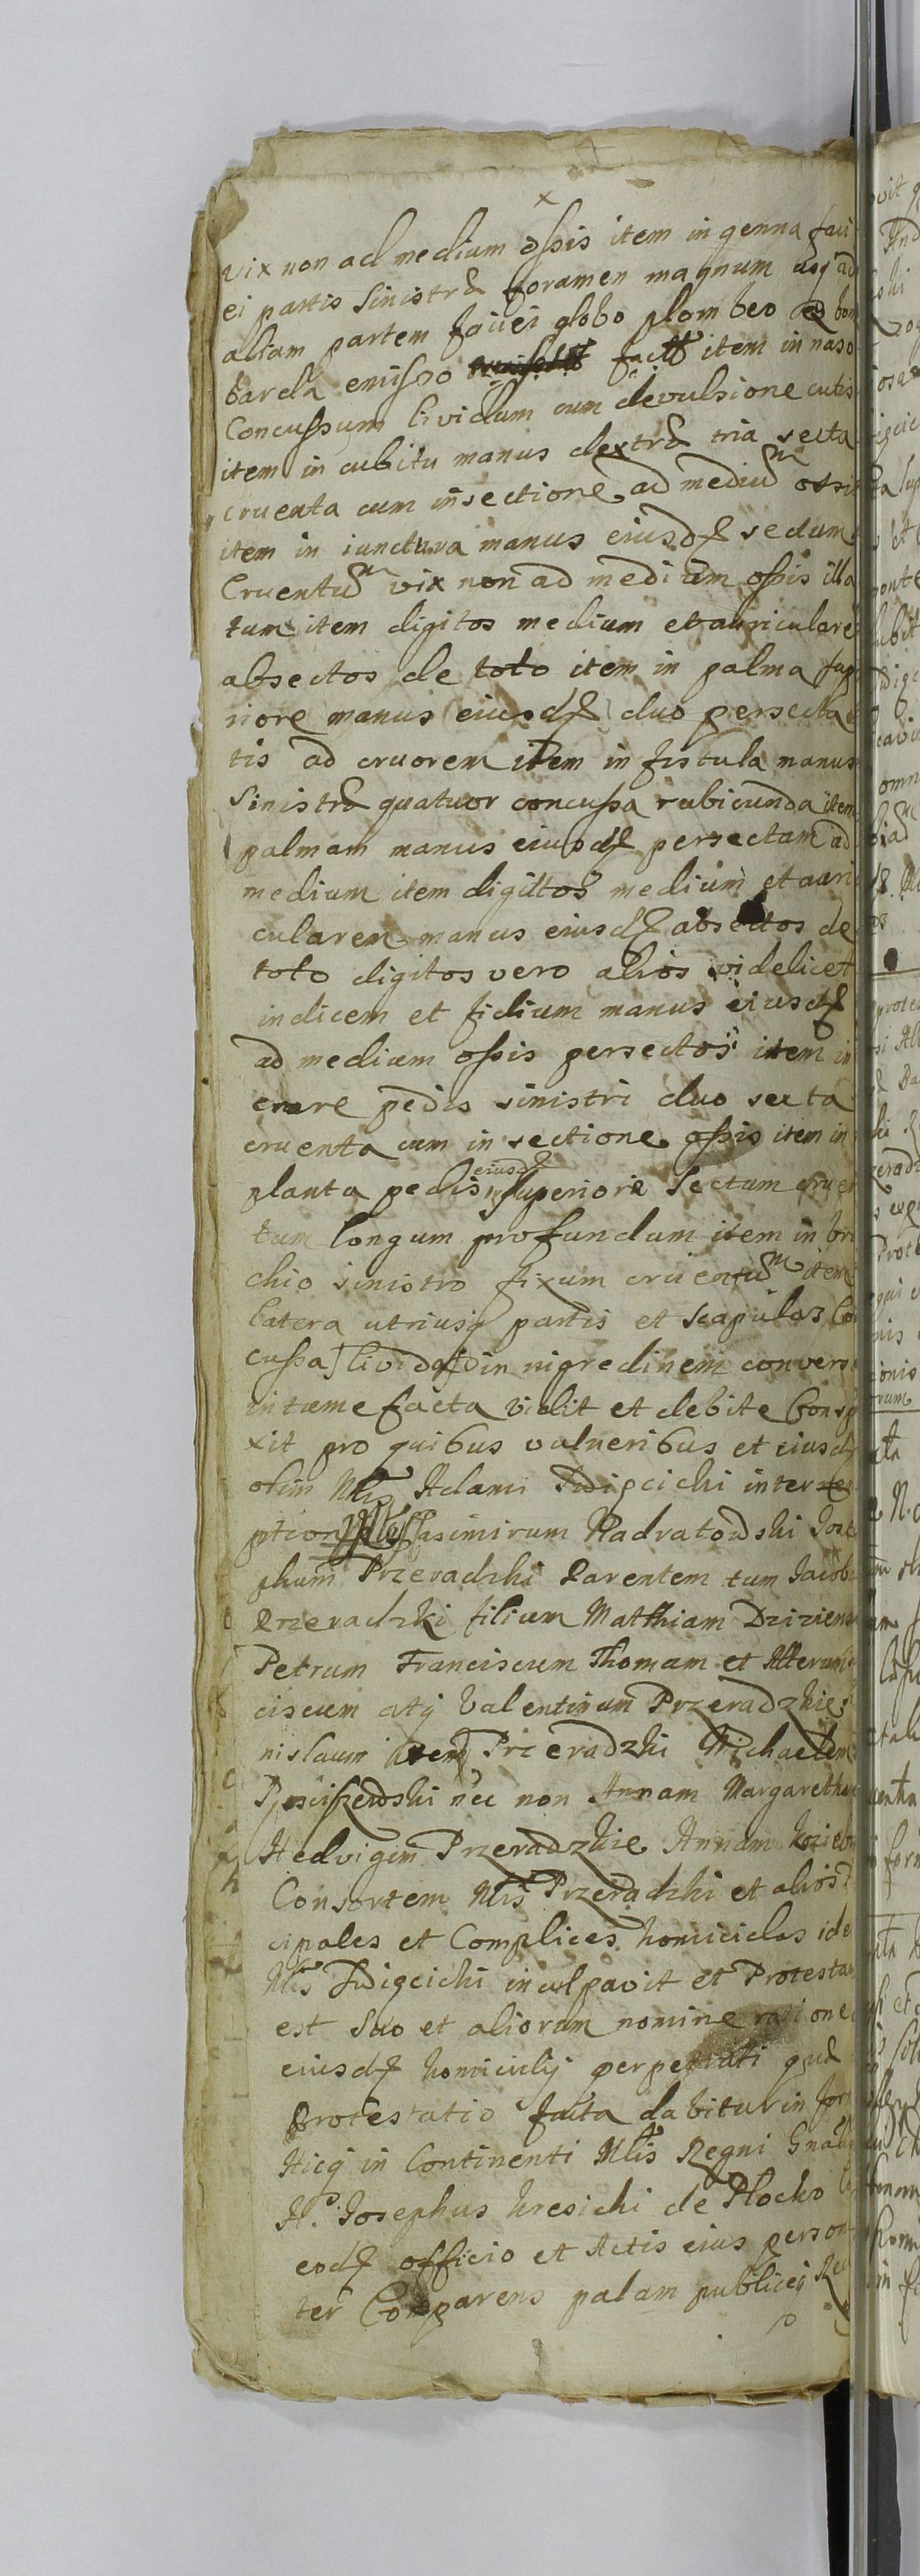 vix non ad medium ossis item in genna faci
ei partis Sinistrae foramen magnum usq ad
aliam partem faciei globo plombeo ex bom
barda emisso factu item in naso
Concussum lividum cum devulsione cutis
item in cubitu manus dextrae tria secta
cruenta cum insectione ad medium ossis
item in iunctura manus eiusd sectum
Cruentum vix non ad medium ossis illa
tum item digitos medium et auriculare
absectos de toto item in palma sup
riore manus eiusd duo persecta
tis ad cruorem item in fistula manus
Sinistrae quatuor concussa rubicunda item
palmam manus eiusd persectam ad
medium item digittos medium et auri
cularem manus eiusd absectos de
toto digitos vero alios videlicet
indicem et fidium manus eiusd
ad medium ossis persectos item in
crure pedis sinistri duo secta
cruenta cum in sectione ossis item in
planta pedis eiusd superiori Sectum cruen
tum longum profundum item in bra
chio sinistro fixum cruentum item
latera utriusq partis et scapulas Con
cussa livida in nigredinem convers
intume facta vidit et debite Consp
xit pro quibus vulneribus et eiusd
olim Adami interem
ption Casimirum Nadratowski Jose
phum Przeradzki Parentem tum Jacob
Przeradzki filium Matthiam
Petrum Franciscum Thomam et Alterum
ciscum atq Valentinum Przeradzkie
nislaum item Przeradzki Michaelem
nec non Annam Margaretham
Hedvigim Przeradzkie Annam
Consortem Przeradzki et alios
cipales et Complices homicidas ide
inculpavit et Protesta
est Suo et aliorum nomine ratione
eiusd homicidij perpetrati quae
Protestatio facta dabitur in for
Hicq in Continenti Mlis Regni Gnalis
H. Josephus Kresicki de Plocko
eod officio et Actis eius person
ter Comparens palam publiceq Re